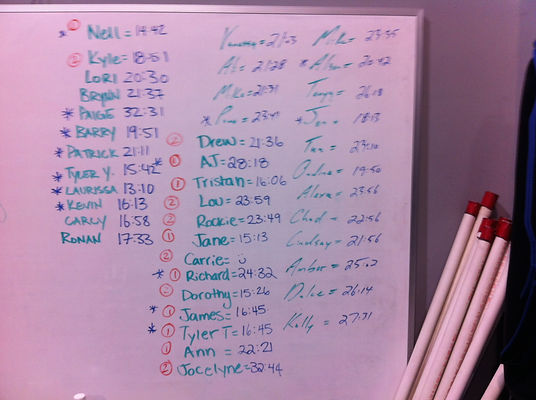 * ① Nell = 14:42
② Kyle = 18:51
LORI 20:30
BRYNN 21:37
* PAIGE 32:31
* BARRY 19:51
* PATRICK 21:11
* TYLER Y. 15:42
* LAURISSA 13:10
* KEVIN 16:13
CARLY 16:58
RONAN 17:53
② Drew = 21:36
* ① AJ = 28:18
① Tristan = 16:06
② Lou = 23:59
② Rockie = 23:49
① Jane = 15:13
② Carrie = ü
* ① Richard = 24:32
Dorothy = 15:26
* ① James = 16:45
* ① Tyler T = 16:45
① Ann = 22:21
② Jocelyne = 32:44
Vanessa = 21:23
Al = 21:28
Mike = 21:31
* = 23:47
Mike = 23:35
* = 20:42
= 26:18
* Jen = 18:13
= 23:10
= 19:50
= 23:56
Chad = 22:56
Lindsay = 21:56
Amber = 25:02
= 26:14
Kelly = 27:31